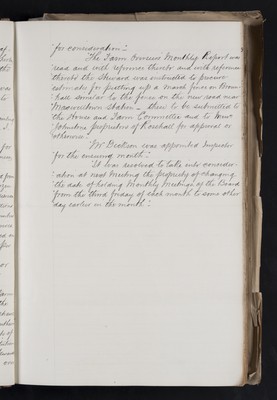 for consideration.
The Farm Overseers Monthly Report was
read and with reference thereto and with reference
thereto the Steward was instructed to procure
estimate for putting up a march fence on
similar to the fence on the new road near
Maxwelltown Station - these to be submitted to
the House and Farm Committee and to
Johnston proprietors of for approval or
otherwise.
Mr was appointed Inspector
for the ensuing month.
It was resolved to take into consider-
ation at next meeting the propriety of changing
the date of holding Monthly Meetings of the Board
from the third Friday of each month to some other
day earlier in the month.